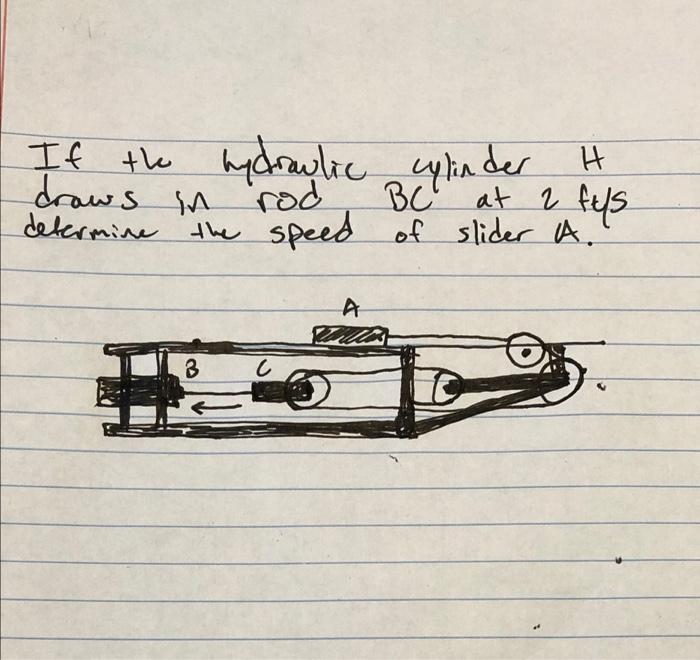 If the hydraulic cylinder H
draws in rod BC at 2 ft/s
determine the speed of slider A.
A
B C